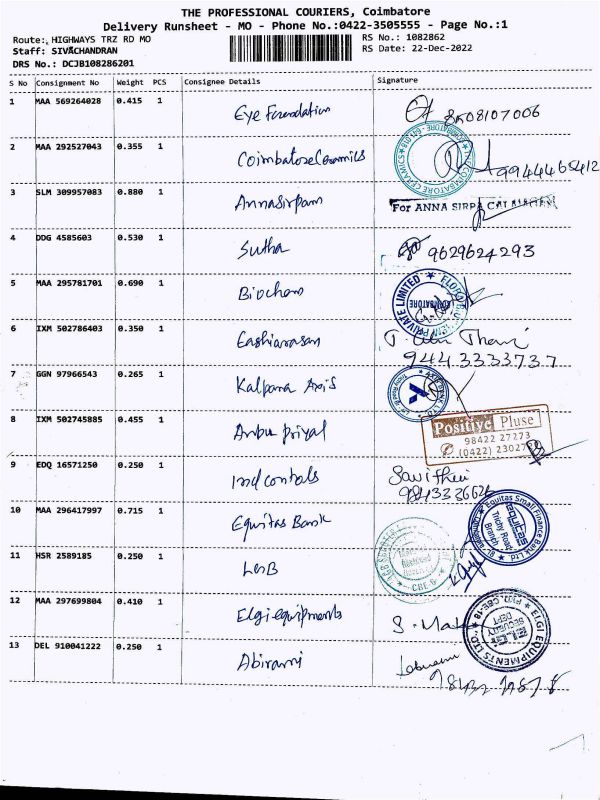 THE PROFESSIONAL COURIERS, Coimbatore
Delivery Runsheet - MO - Phone No.:0422-3505555 - Page No.:1
Route: HIGHWAYS TRZ RD MO
RS No.: 1082862
Staff: SIVACHANDRAN
RS Date: 22-Dec-2022
DRS No.: DCJB108286201
S No Consignment No Weight PCS Consignee Details Signature
1 MAA 569264028 0.415 1 Eye Foundation 8508107006
2 MAA 292527043 0.355 1 Coimbatore Ceramics 9944465412
3 SLM 309957083 0.880 1 Annasirpam For ANNA SIRPA
4 DDG 4585603 0.530 1 Sutha 9629624293
5 MAA 295781701 0.690 1 Biochem
PRIVATE LIMITED COIMBATORE
6 IXM 502786403 0.350 1
9443333737
7 GGN 97966543 0.265 1 Kalpana Axis
AXIS BANK LTD.
8 IXM 502745885 0.455 1 Anbu priyal
Positive Pluse
98422 27273
9 EDQ 16571250 0.250 1 Ind contols
10 MAA 296417997 0.715 1 Equitas Bank
Equitas Small Finance Bank Ltd.
equitas
Trichy Road
Branch
11 HSR 2589185 0.250 1
CBE
12 MAA 297699804 0.410 1 Elgi equipments
ELGI EQUIPMENTS LTD
ELGI
SECURITY
DEPT
13 DEL 910041222 0.250 1 Abirami